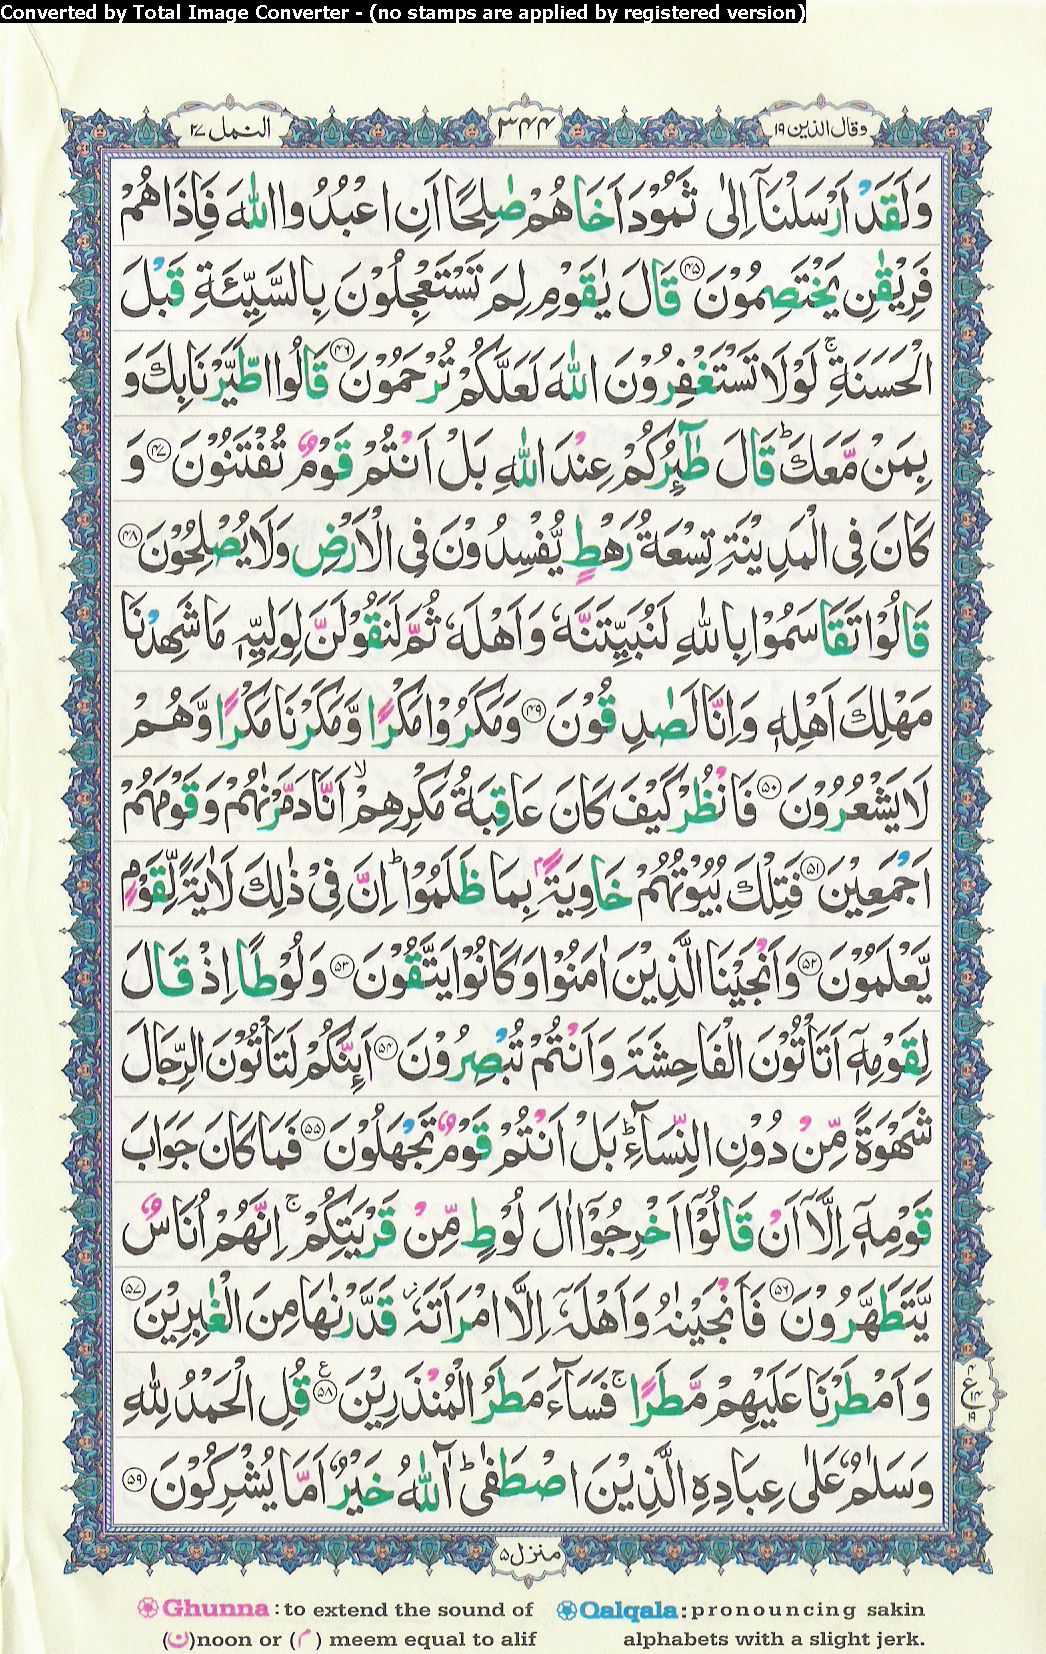 Converted by Total Image Converter - (no stamps are applied by registered version)
وقال الذين ١٩
٣٤٤
النمل ٢٧
وَلَقَدْ اَرْسَلْنَاۤ اِلٰى ثَمُوْدَ اَخَاهُمْ صٰلِحًا اَنِ اعْبُدُوا اللّٰهَ فَاِذَا هُمْ
فَرِيْقٰنِ يَخْتَصِمُوْنَ ﴿۴۵﴾ قَالَ يٰقَوْمِ لِمَ تَسْتَعْجِلُوْنَ بِالسَّيِّئَةِ قَبْلَ
الْحَسَنَةِ ۚ لَوْلَا تَسْتَغْفِرُوْنَ اللّٰهَ لَعَلَّكُمْ تُرْحَمُوْنَ ﴿۴۶﴾ قَالُوا اطَّيَّرْنَا بِكَ وَ
بِمَنْ مَّعَكَ ؕ قَالَ طٰٓئِرُكُمْ عِنْدَ اللّٰهِ بَلْ اَنْتُمْ قَوْمٌ تُفْتَنُوْنَ ﴿۴۷﴾ وَ
كَانَ فِى الْمَدِيْنَةِ تِسْعَةُ رَهْطٍ يُّفْسِدُوْنَ فِى الْاَرْضِ وَلَا يُصْلِحُوْنَ ﴿۴۸﴾
قَالُوْا تَقَاسَمُوْا بِاللّٰهِ لَنُبَيِّتَنَّهٗ وَاَهْلَهٗ ثُمَّ لَنَقُوْلَنَّ لِوَلِيِّهٖ مَا شَهِدْنَا
مَهْلِكَ اَهْلِهٖ وَاِنَّا لَصٰدِقُوْنَ ﴿۴۹﴾ وَمَكَرُوْا مَكْرًا وَّمَكَرْنَا مَكْرًا وَّهُمْ
لَا يَشْعُرُوْنَ ﴿۵۰﴾ فَانْظُرْ كَيْفَ كَانَ عَاقِبَةُ مَكْرِهِمْ ۙ اَنَّا دَمَّرْنٰهُمْ وَقَوْمَهُمْ
اَجْمَعِيْنَ ﴿۵۱﴾ فَتِلْكَ بُيُوْتُهُمْ خَاوِيَةًۢ بِمَا ظَلَمُوْا ؕ اِنَّ فِىْ ذٰلِكَ لَاٰيَةً لِّقَوْمٍ
يَّعْلَمُوْنَ ﴿۵۲﴾ وَاَنْجَيْنَا الَّذِيْنَ اٰمَنُوْا وَكَانُوْا يَتَّقُوْنَ ﴿۵۳﴾ وَلُوْطًا اِذْ قَالَ
لِقَوْمِهٖۤ اَتَاْتُوْنَ الْفَاحِشَةَ وَاَنْتُمْ تُبْصِرُوْنَ ﴿۵۴﴾ اَئِنَّكُمْ لَتَاْتُوْنَ الرِّجَالَ
شَهْوَةً مِّنْ دُوْنِ النِّسَآءِ ؕ بَلْ اَنْتُمْ قَوْمٌ تَجْهَلُوْنَ ﴿۵۵﴾ فَمَا كَانَ جَوَابَ
قَوْمِهٖۤ اِلَّاۤ اَنْ قَالُوْۤا اَخْرِجُوْۤا اٰلَ لُوْطٍ مِّنْ قَرْيَتِكُمْ ۚ اِنَّهُمْ اُنَاسٌ
يَّتَطَهَّرُوْنَ ﴿۵۶﴾ فَاَنْجَيْنٰهُ وَاَهْلَهٗۤ اِلَّا امْرَاَتَهٗ ؗ قَدَّرْنٰهَا مِنَ الْغٰبِرِيْنَ ﴿۵۷﴾
وَاَمْطَرْنَا عَلَيْهِمْ مَّطَرًا ۚ فَسَآءَ مَطَرُ الْمُنْذَرِيْنَ ﴿۵۸﴾ قُلِ الْحَمْدُ لِلّٰهِ
۴ ع ۱۴ ۱۹
وَسَلٰمٌ عَلٰى عِبَادِهِ الَّذِيْنَ اصْطَفٰى ؕ آٰللّٰهُ خَيْرٌ اَمَّا يُشْرِكُوْنَ ﴿۵۹﴾
منزل ۵
Ghunna : to extend the sound of (ن)noon or (م) meem equal to alif
Qalqala : pronouncing sakin alphabets with a slight jerk.